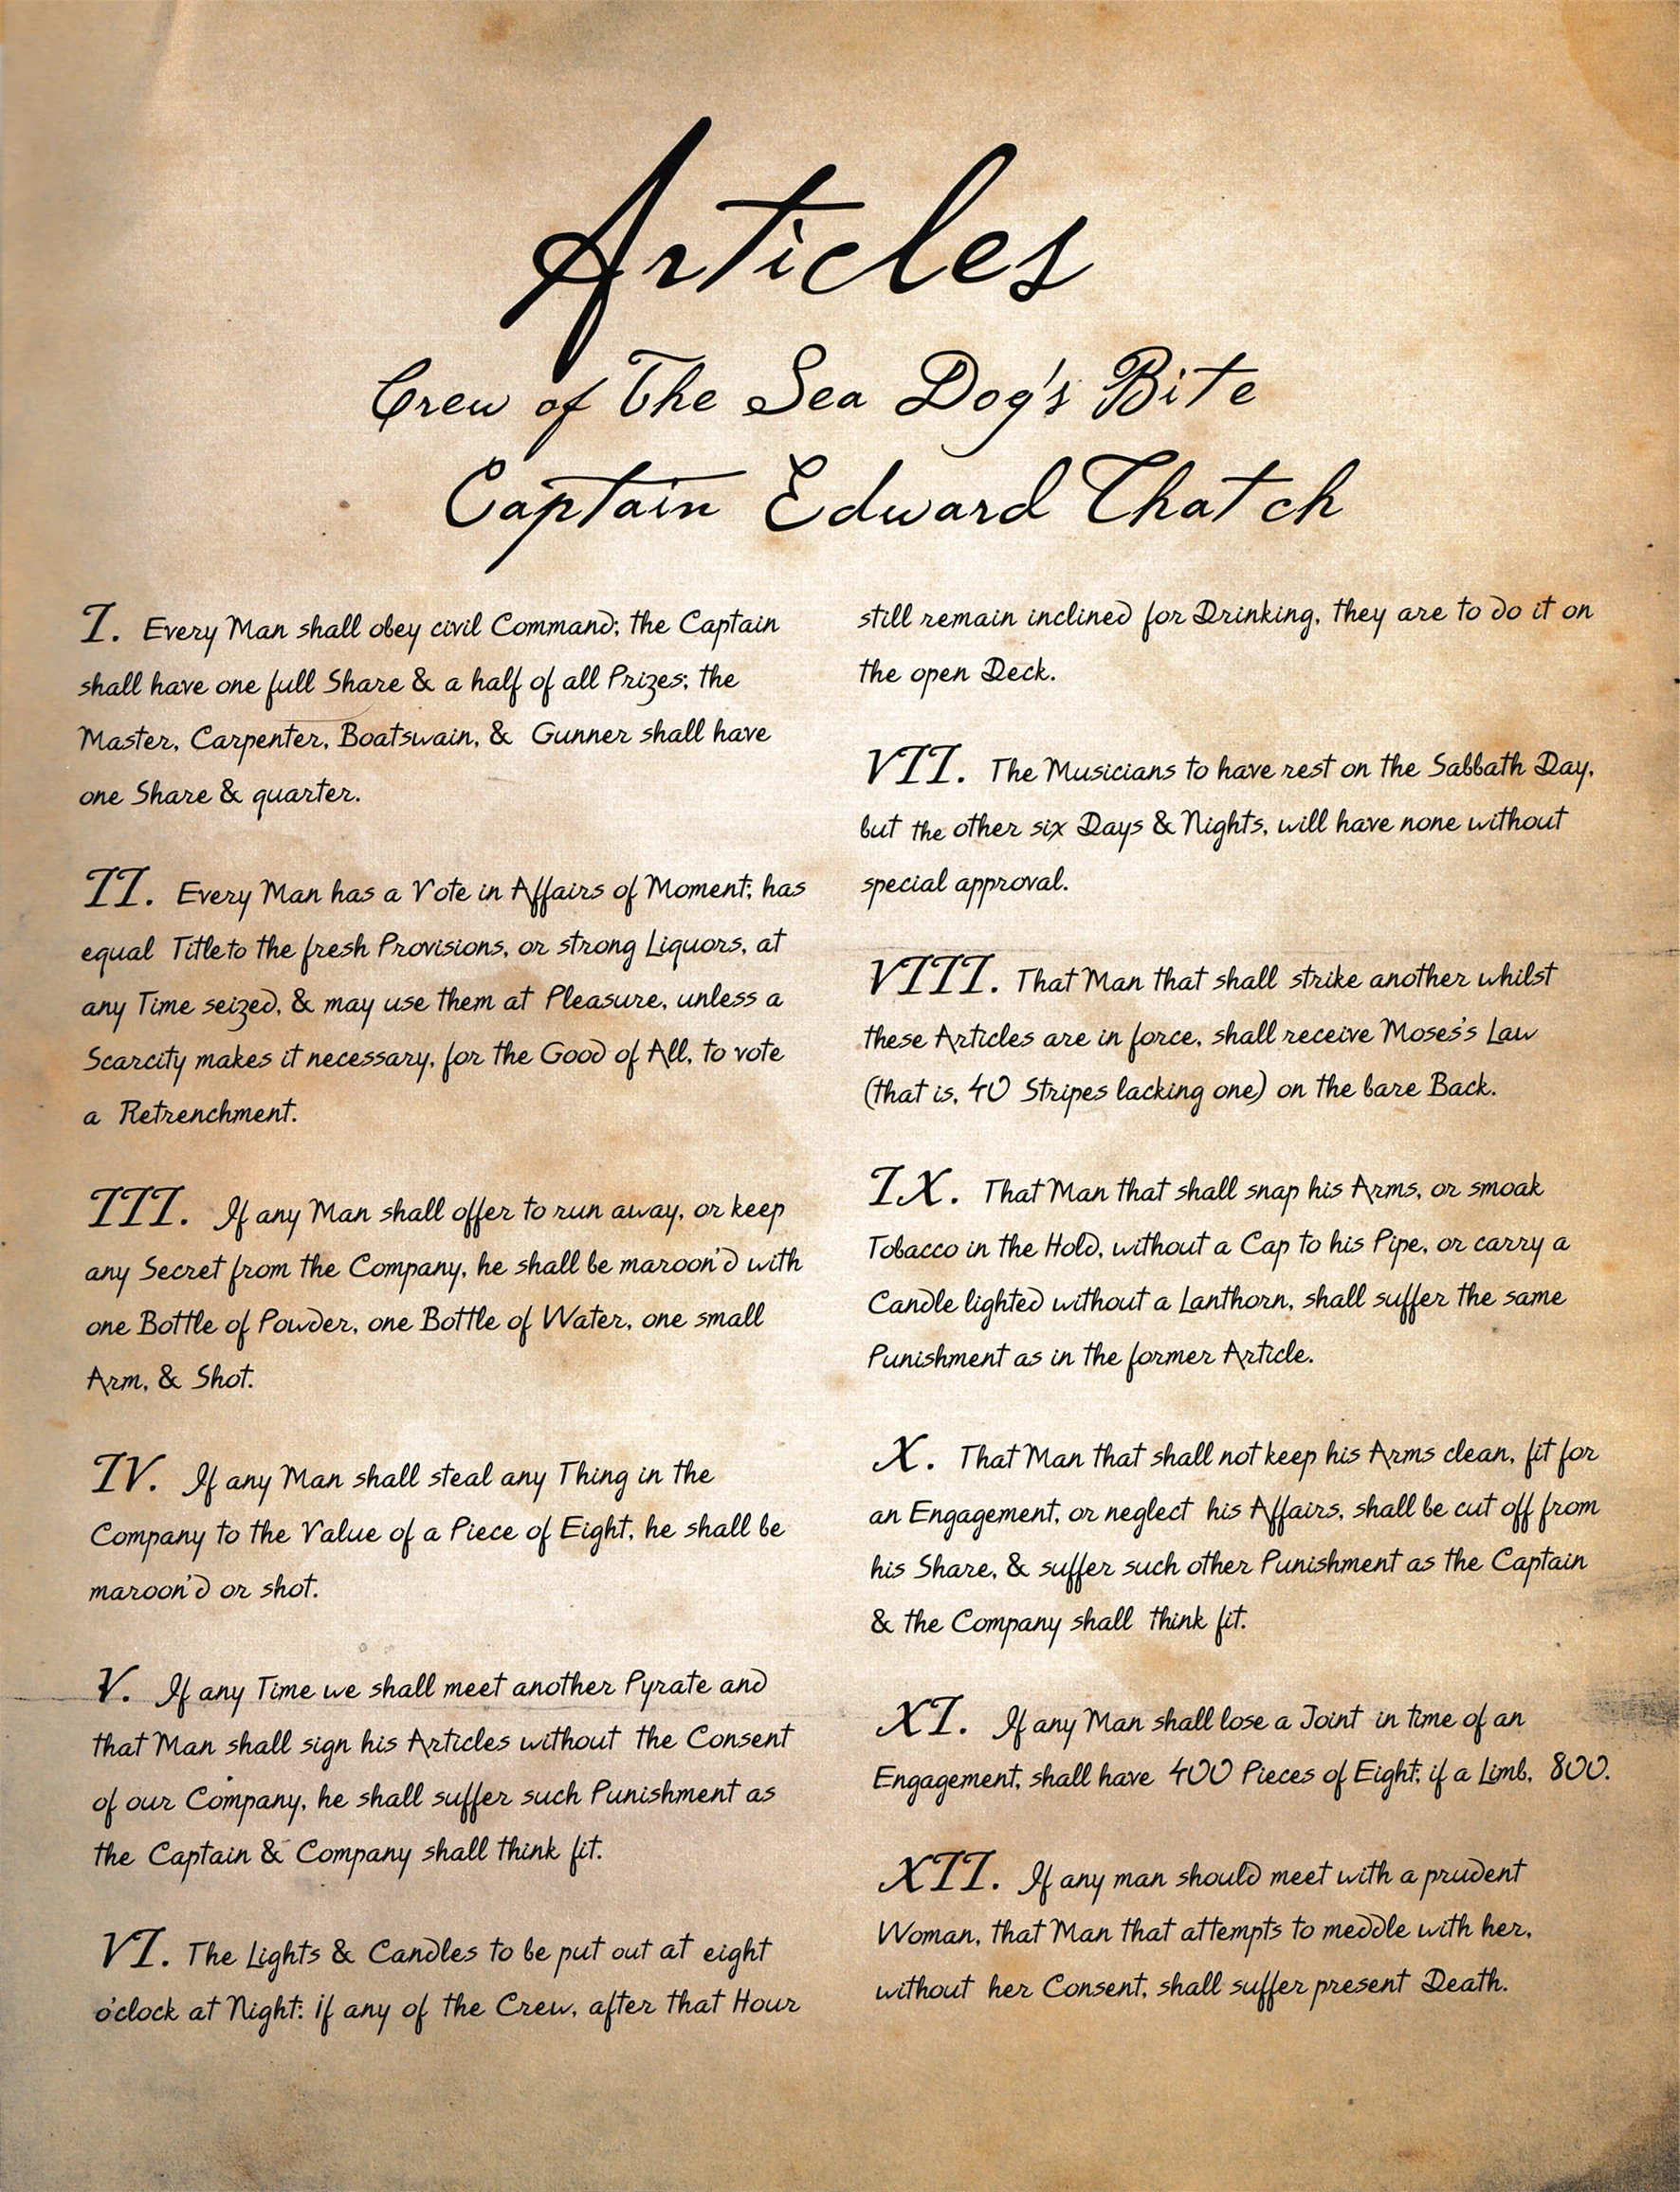 Articles
Crew of The Sea Dog's Bite
Captain Edward Thatch
I. Every Man shall obey civil Command; the Captain
shall have one full Share & a half of all Prizes; the
Master, Carpenter, Boatswain, & Gunner shall have
one Share & quarter.
II. Every Man has a Vote in Affairs of Moment; has
equal Title to the fresh Provisions, or strong Liquors, at
any Time seized, & may use them at Pleasure, unless a
Scarcity makes it necessary, for the Good of All, to vote
a Retrenchment.
III. If any Man shall offer to run away, or keep
any Secret from the Company, he shall be maroon'd with
one Bottle of Powder, one Bottle of Water, one small
Arm, & Shot.
IV. If any Man shall steal any Thing in the
Company to the Value of a Piece of Eight, he shall be
maroon'd or shot.
V. If any Time we shall meet another Pyrate and
that Man shall sign his Articles without the Consent
of our Company, he shall suffer such Punishment as
the Captain & Company shall think fit.
VI. The Lights & Candles to be put out at eight
o'clock at Night: If any of the Crew, after that Hour
still remain inclined for Drinking, they are to do it on
the open Deck.
VII. The Musicians to have rest on the Sabbath Day,
but the other six Days & Nights, will have none without
special approval.
VIII. That Man that shall strike another whilst
these Articles are in force, shall receive Moses's Law
(that is, 40 Stripes lacking one) on the bare Back.
IX. That Man that shall snap his Arms, or smoak
Tobacco in the Hold, without a Cap to his Pipe, or carry a
Candle lighted without a Lanthorn, shall suffer the same
Punishment as in the former Article.
X. That Man that shall not keep his Arms clean, fit for
an Engagement, or neglect his Affairs, shall be cut off from
his Share, & suffer such other Punishment as the Captain
& the Company shall think fit.
XI. If any Man shall lose a Joint in time of an
Engagement, shall have 400 Pieces of Eight; if a Limb, 800.
XII. If any man should meet with a prudent
Woman, that Man that attempts to meddle with her,
without her Consent, shall suffer present Death.